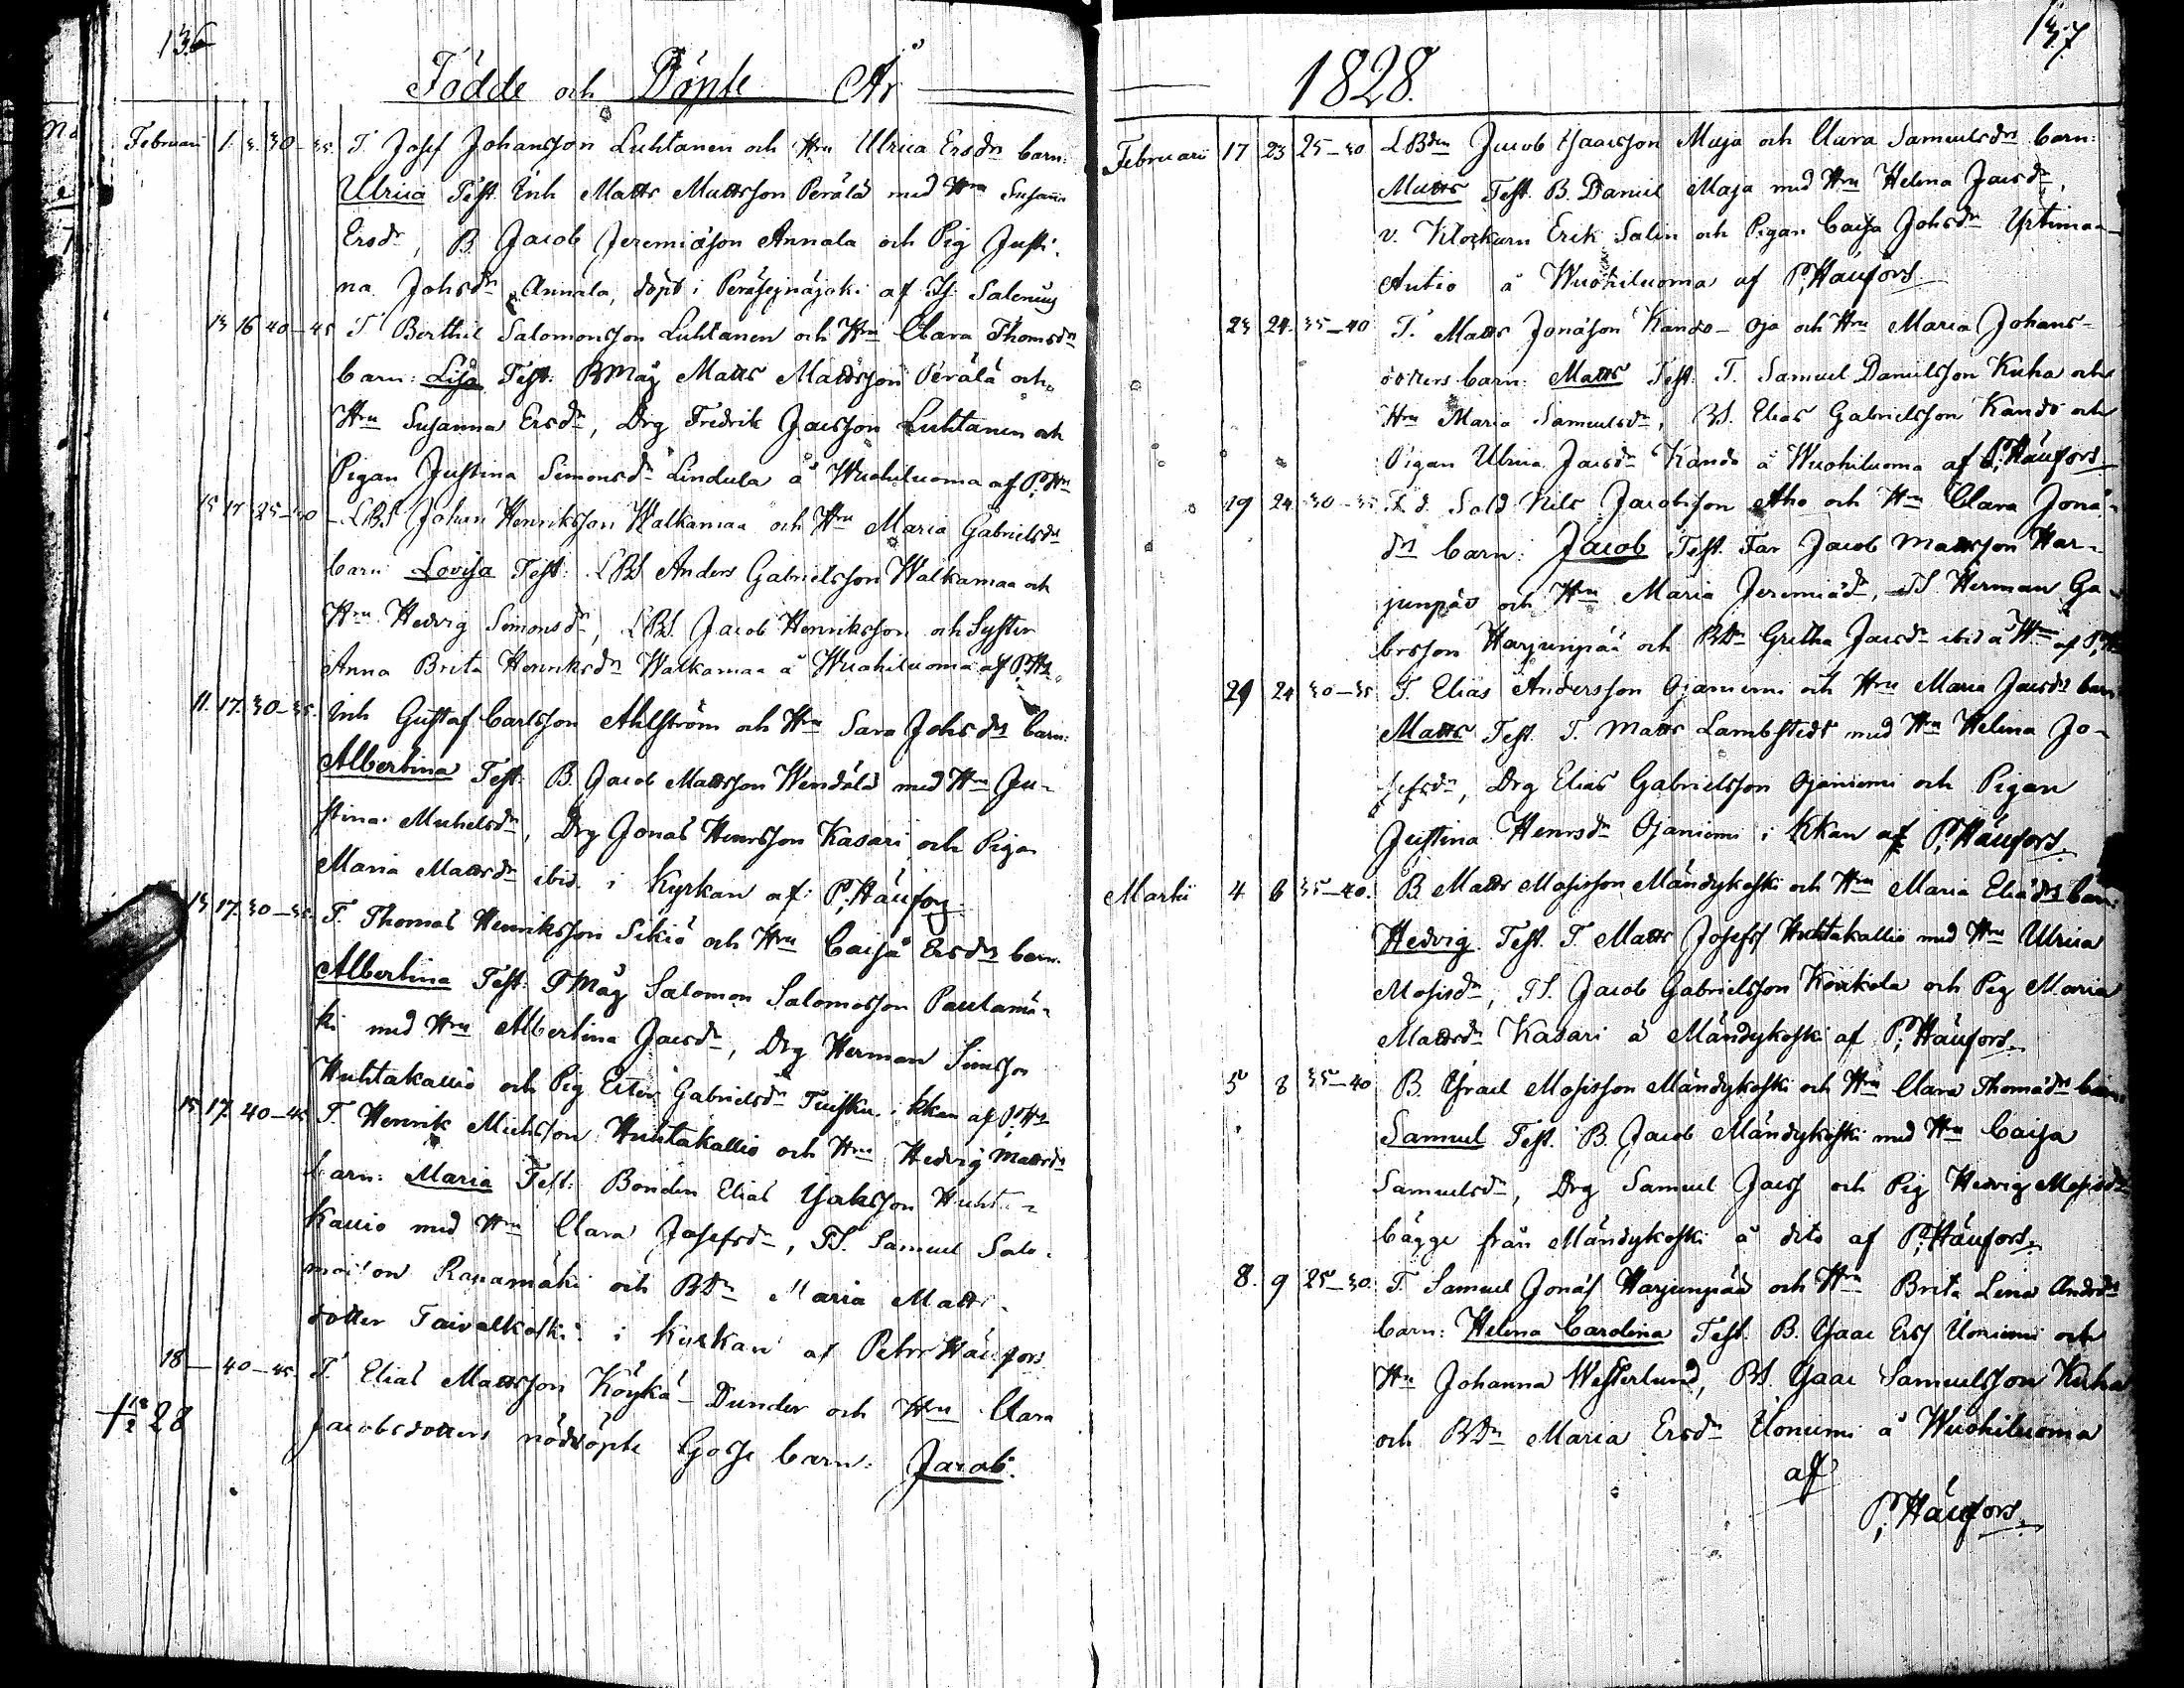 136
Födde och Döpte År
Februari 1. 3. 30-35. T. Josef Johansson Luhtanen och Hru Ulrica Ersdrs barn:
Ulrica Test. Inh Matts Mattsson Perälä med Hru Susanna
Ersdr, B Jacob Jeremiæson Annala och Pig Justi-
na Johsdr Annala, döpt i Peräseinäjoki af Salenius
13 16 40-45 T Berthil Salomonsson Luhtanen och Hru Clara Thomsdrs
barn: Lisa Test: BMåg Matts Mattsson Perälä och
Hru Susanna Ersdr, Drg Fredrik Jacsson Luhtanen och
Pigan Justina Simonsdr Lindula å Wuohiluoma af P. Hn
15 17 25-30 LBS Johan Henriksson Walkamaa och Hru Maria Gabrielsdrs
barn Lovisa Test: LBS Anders Gabrielsson Walkamaa och
Hru Hedvig Simonsdr, LBS. Jacob Henriksson och Syster
Anna Brita Henriksdr Walkamaa å Wuohiluoma af P. Hn
11. 17. 30-35. Inh Gustaf Carlsson Ahlström och Hru Sara Johsdrs barn:
Albertina Test: B. Jacob Mattsson Wendälä med Hru Ju-
stina Michelsdr, Drg Jonas Henrsson Kasari och Pigan
Maria Mattsdr ibid. i Kyrkan af P. Häufors
13 17. 30-35. T. Thomas Henriksson Sikiö och Hru Caisa Ersdrs barn.
Albertina Test: TMåg Salomon Salomosson Pautamä-
ki med Hru Albertina Jacsdr, Drg Herman Simsson
Huhtakallio och Pig Ester Gabrielsdr Tuisku i kkan af P. Hn
15. 17. 40-45 T. Henrik Michsson Huhtakallio och Hru Hedvig Mattsdrs
barn: Maria Test: Bonden Elias Isaksson Huhta-
kallio med Hru Clara Josefsdr, TS. Samuel Salo-
monsson Rapamäki och BDr Maria Matts-
dotter Taivalkoski i kyrkan af Petter Häufors
18 — 40-45. T. Elias Mattsson Köykä-Dunder och Hru Clara
† 18/2 28 Jacobsdotters nöddöpte Gosse barn: Jacob.
137
1828.
Februarii 17 23 25-30 LBden Jacob Isaacsson Maja och Clara Samuelsdrs barn:
Matts Test. B. Daniel Maja med Hru Helena Jacsdr,
v. Klockarn Erik Salin och Pigan Caisa Johsdr Yrtimaa-
Autio å Wuohiluoma af P. Häufors
23 24. 35-40 T. Matts Jonæson Kando-oja och Hru Maria Johans-
dotters barn: Matts Test. T. Samuel Danielsson Kuha och
Hru Maria Samuelsdr, BS. Elias Gabrielsson Kando och
Pigan Ulrica Jacsdr Kando å Wuohiluoma af P. Häufors
19 24 30-35 F.d. Sold Nils Jacobsson Aho och Hru Clara Jonæ-
drs barn: Jacob Test. Far Jacob Mattsson Har-
junpää och Hru Maria Jeremiædr, TS. Herman Ga-
brsson Harjunpää och BDr Gretha Jacsdr ibid å Wma af P. Hn
21 24 30-35 T. Elias Andersson Ojaniemi och Hru Maria Jacsdrs barn
Matts Test. T. Matts Lambstedt med Hru Helena Jo-
sefsdr, Drg Elias Gabrielsson Ojaniemi och Pigan
Justina Henrsdr Ojaniemi i Kkan af P. Häufors.
Martii 4 6 35-40. B. Matts Mosisson Mändykoski och Hru Maria Eliædrs barn:
Hedvig. Test. T. Matts Josefss Huhtakallio med Hru Ulrica
Mosisdr, TS. Jacob Gabrielsson Koukola och Pig Maria
Mattsdr Kasari å Mändykoski af P. Häufors.
5 8 35-40 B. Israel Mosisson Mändykoski och Hru Clara Thomædrs barn
Samuel Test. B. Jacob Mändykoski med Hru Caisa
Samuelsdr, Drg Samuel Jacss och Pig Hedvig Mosisdr
bägge från Mändykoski å dito af P. Häufors.
8. 9 25-30. T. Samuel Jonæs Harjunpää och Hru Brita Lena Andrsdrs
barn: Helena Carolina Test. B. Isaac Erss Uoniemi och
Hru Johanna Westerlund, BS. Isaac Samuelsson Kuha
och BDr Maria Ersdr Uoniemi å Wuohiluoma
af
P. Häufors.